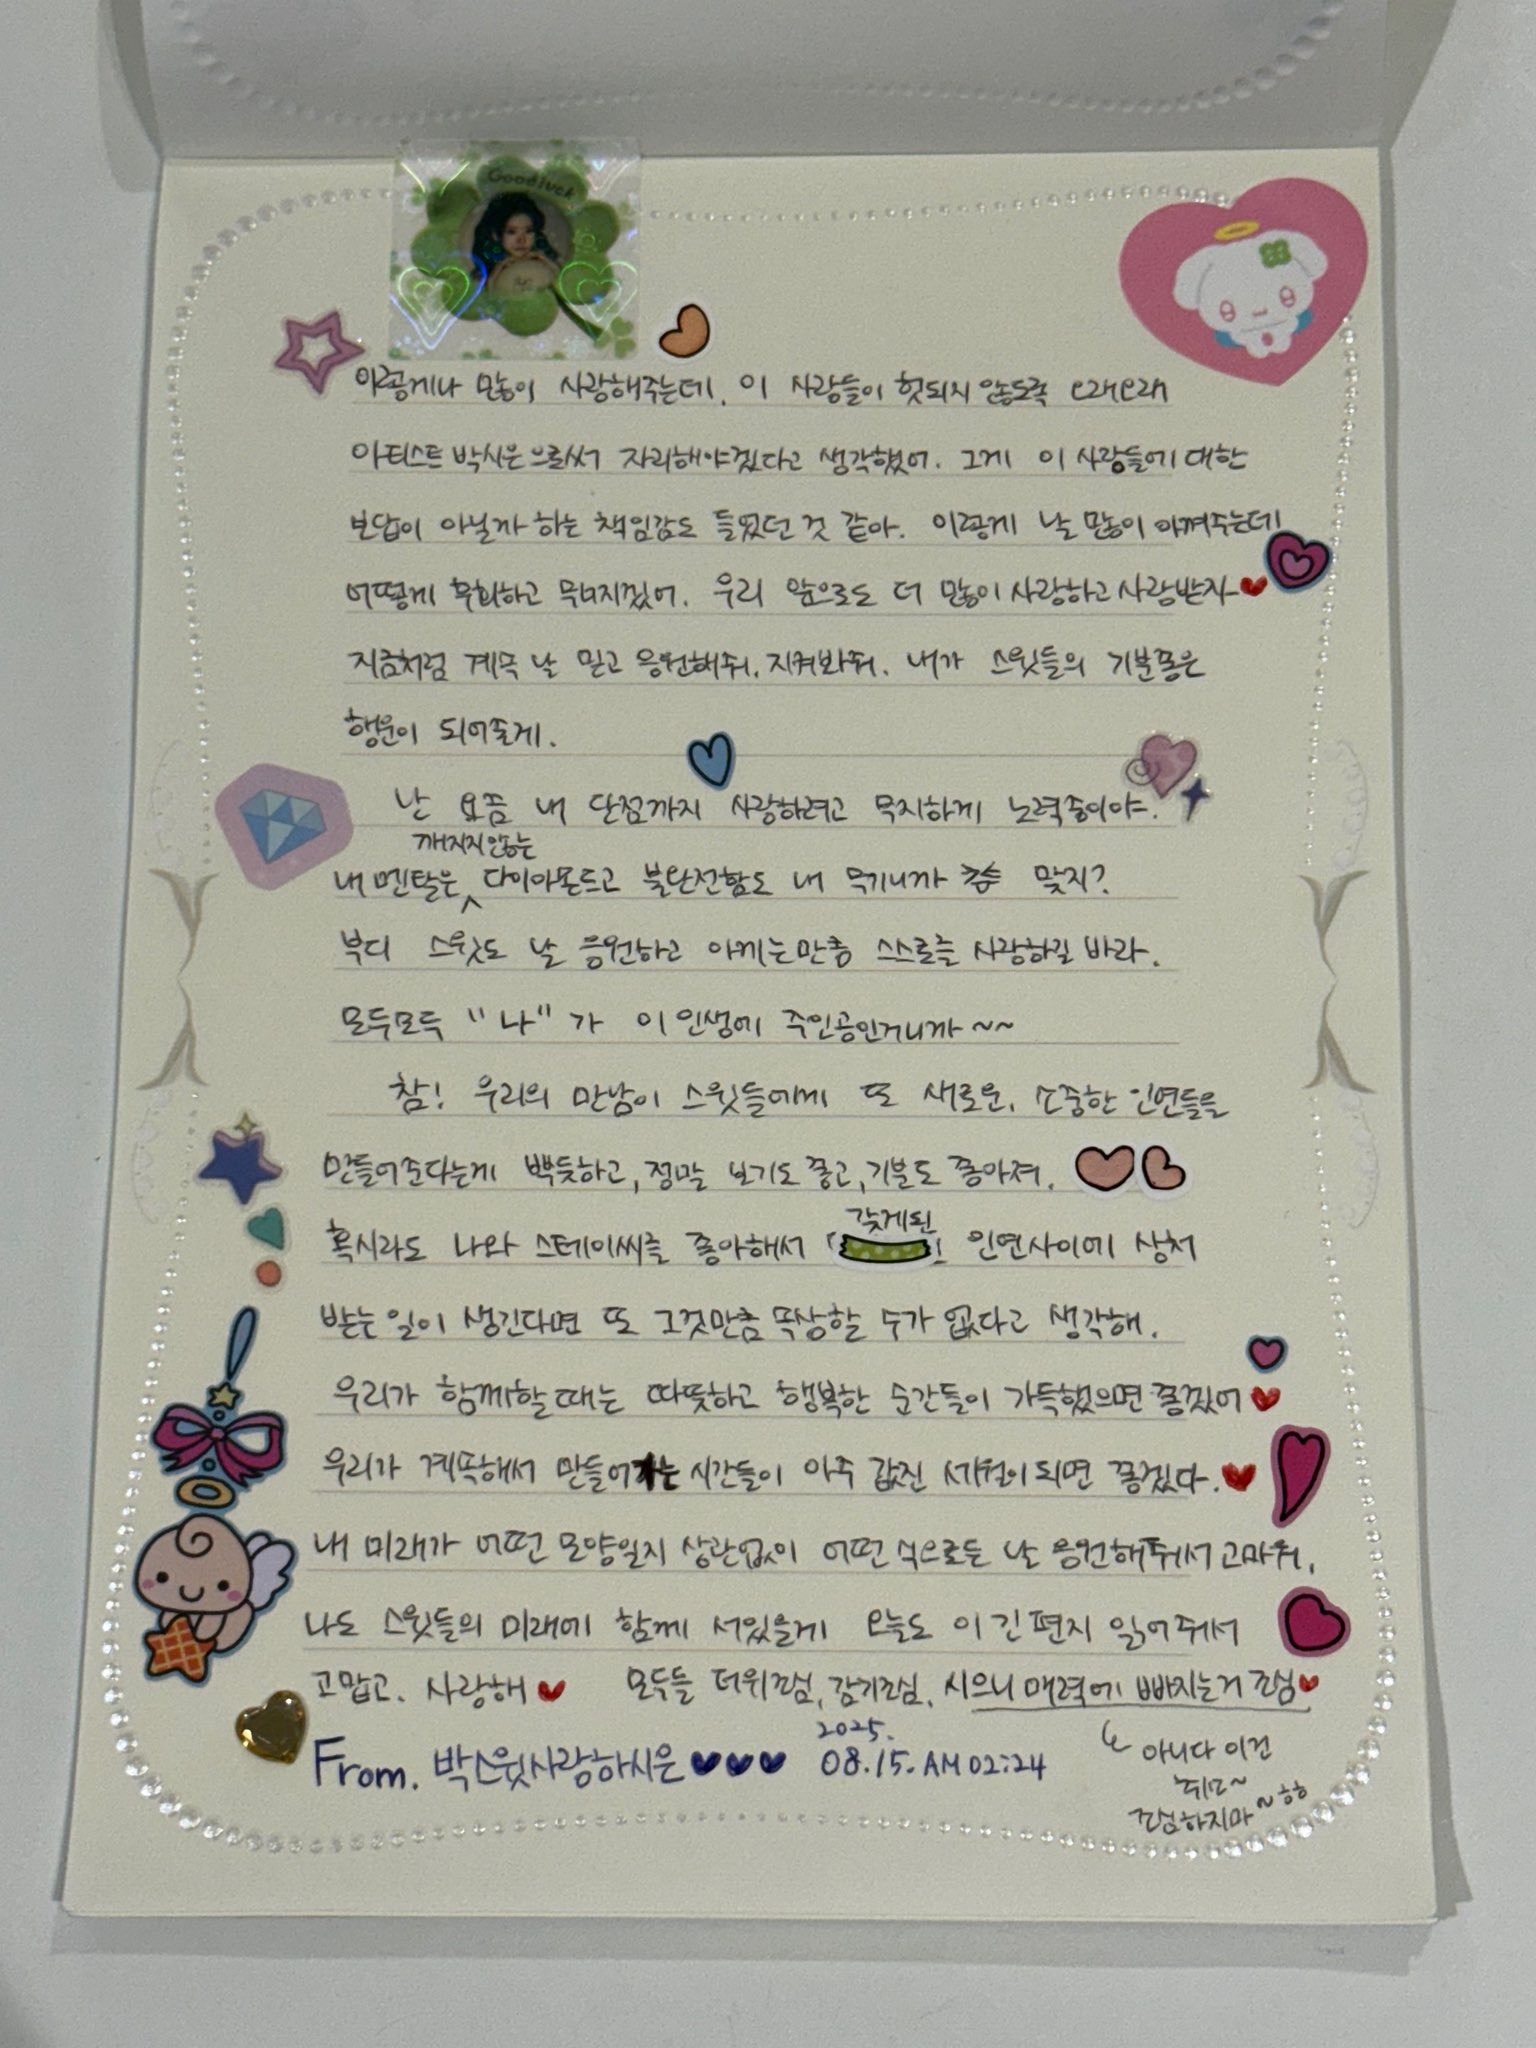 Goodluck
이렇게나 많이 사랑해주는데, 이 사랑들이 헛되지 않도록 오래오래
아티스트 박시은으로써 자리해야겠다고 생각했어. 그게 이 사랑들에 대한
보답이 아닐까 하는 책임감도 들었던 것 같아. 이렇게 날 많이 아껴주는데
어떻게 후회하고 무너지겠어. 우리 앞으로도 더 많이 사랑하고 사랑받자
지금처럼 계속 날 믿고 응원해줘. 지켜봐줘. 내가 스윗들의 기분좋은
행운이 되어줄게.
난 요즘 내 단점까지 사랑하려고 무지하게 노력중이야.
깨지지않는
내 멘탈은 다이아몬드고 불완전함도 내 무기니까 맞지?
부디 스윗도 날 응원하고 아끼는만큼 스스로를 사랑하길 바라.
모두모두 "나"가 이 인생에 주인공인거니까~~
참! 우리의 만남이 스윗들에게 또 새로운, 소중한 인연들을
만들어준다는게 뿌듯하고, 정말 보기도 좋고, 기분도 좋아져.
갖게된
혹시라도 나와 스테이씨를 좋아해서 인연사이에 상처
받는 일이 생긴다면 또 그것만큼 속상할 수가 없다고 생각해.
우리가 함께할때는 따뜻하고 행복한 순간들이 가득했으면 좋겠어
우리가 계속해서 만들어가는 시간들이 아주 값진 세월이되면 좋겠다.
내 미래가 어떤 모양일지 상관없이 어떤 식으로든 날 응원해줘서 고마워.
나도 스윗들의 미래에 함께 서있을게 오늘도 이 긴 편지 읽어줘서
고맙고, 사랑해 모두들 더위조심, 감기조심, 시으니 매력에 빠지는거 조심
From. 박스윗사랑하시은 2025.
08.15. AM 02:24
아니다 이건
취소~
조심하지마~ㅎㅎ